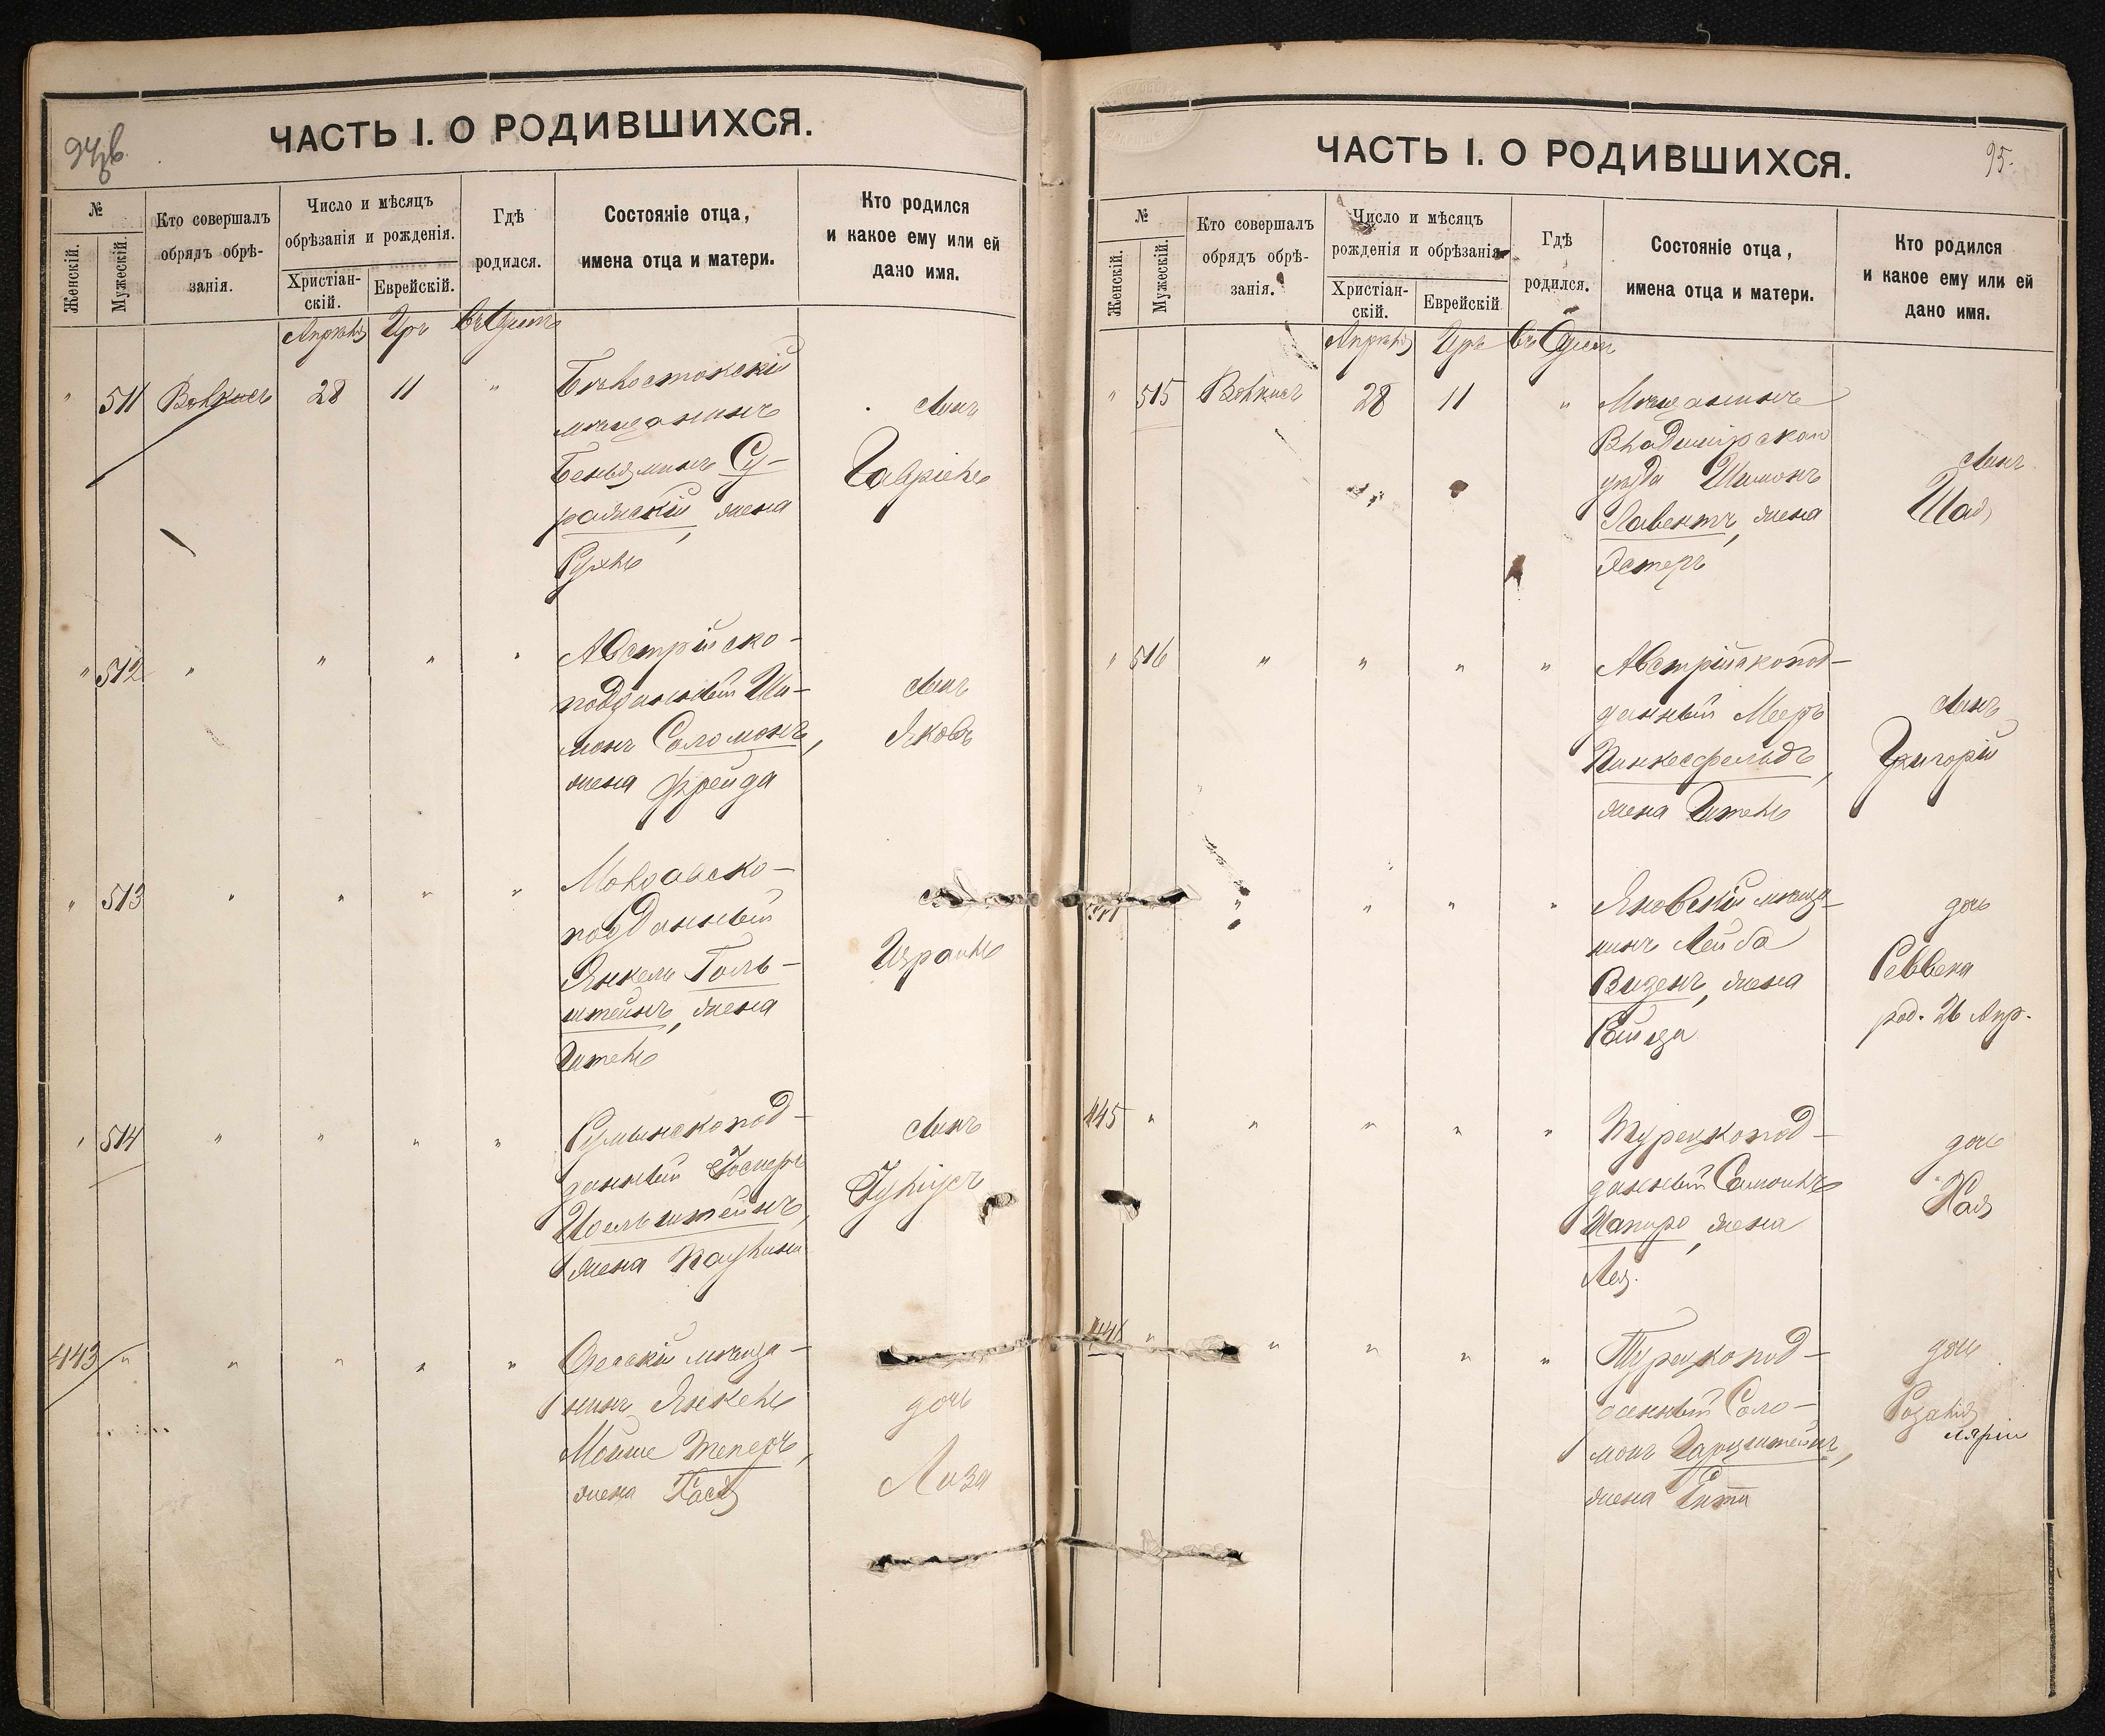 94 об.
ЧАСТЬ I. О РОДИВШИХСЯ.
№
Женскій.
Мужескій.
Кто совершалъ
обрядъ обрѣ-
занія.
Число и мѣсяцъ
обрѣзанія и рожденія.
Христіан-
скій.
Еврейскій.
Гдѣ
родился.
Состояніе отца,
имена отца и матери.
Кто родился
и какое ему или ей
дано имя.
Апрѣль Іръ въ Одессѣ
" 511 28 11 " Бѣлостокскій
мѣщанинъ
Беньяминъ Су-
ражскій, жена
Рухль
сынъ
Гавріель
" 512 " " " " Австрійско-
подданный Ши-
монъ Соломонъ,
жена Фрейда
сынъ
Яковъ
" 513 " " " " Молдавско-
подданный
Янкель Голь-
штейнъ, жена
Гитель
Израиль
" 514 " " " " Румынскопод-
данный
жена Паулина
сынъ
Юліусъ
443 " " " " " Одесскій мѣща-
нинъ Янкель
Мойше Теперъ,
жена Хася
дочь
Лиза
95.
ЧАСТЬ I. О РОДИВШИХСЯ.
№
Женскій.
Мужескій.
Кто совершалъ
обрядъ обрѣ-
занія.
Число и мѣсяцъ
рожденія и обрѣзанія
Христіан-
скій.
Еврейскій
Гдѣ
родился.
Состояніе отца,
имена отца и матери.
Кто родился
и какое ему или ей
дано имя.
Апрѣль Іръ въ Одессѣ
" 515 28 11 " Мѣщанинъ
Владимірскаго
уѣзда Шимонъ
Лавентъ, жена
Эстеръ
сынъ
Шая
" 516 " " " " Австрійскопод-
данный Мееръ
Пинкесфельдъ,
жена Гитель
сынъ
Григорій
" " " " Яновскій мѣща-
нинъ Лейба
Визенъ, жена
Рейзя
дочь
Реввека
род. 26 Апр.
445 " " " " " Турецкопод-
данный Самоилъ
Шапиро, жена
Лея.
дочь
Хая
446 " " " " " Турецкопод-
данный Соло-
монъ Гарцштейнъ,
жена Гитя
дочь
Розалія